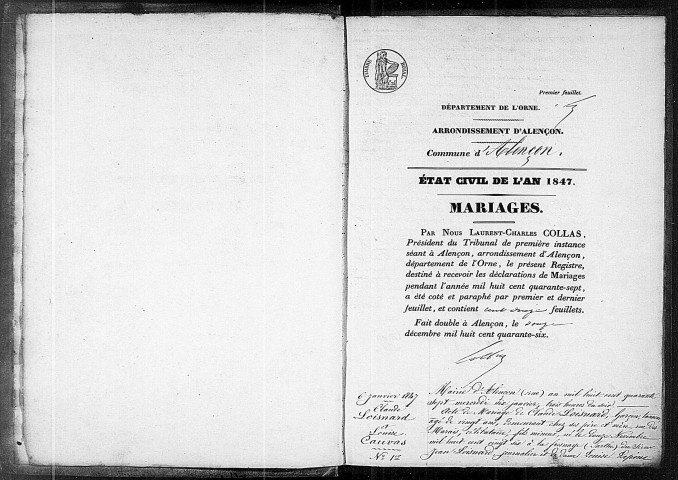 Premier feuillet.
DÉPARTEMENT DE L'ORNE.
ARRONDISSEMENT D'ALENÇON.
Commune d'Alençon.
ÉTAT CIVIL DE L'AN 1847.
MARIAGES.
PAR NOUS LAURENT-CHARLES COLLAS,
Président du Tribunal de première instance
séant à Alençon, arrondissement d'Alençon,
département de l'Orne, le présent Registre,
destiné à recevoir les déclarations de Mariages
pendant l'année mil huit cent quarante-sept,
a été coté et paraphé par premier et dernier
feuillet, et contient cent douze feuillets.
Fait double à Alençon, le douze
décembre mil huit cent quarante-six.
Collas
6 janvier 1847
Claude
Loisnard
et
Louise
Cauvas
N° 12
Mairie d'Alençon (Orne) an mil huit cent quarante
sept mercredi six janvier, trois heures du soir
Acte de Mariage de Claude Loisnard, Garçon
âgé de vingt ans, demeurant chez ses père et mère, rue des
Marais, célibataire, fils mineur, né le douze Novembre
mil huit cent vingt six à la fresnaye (Sarthe) du Sieur
Jean Loisnard journalier et de Dame Louise Lépine